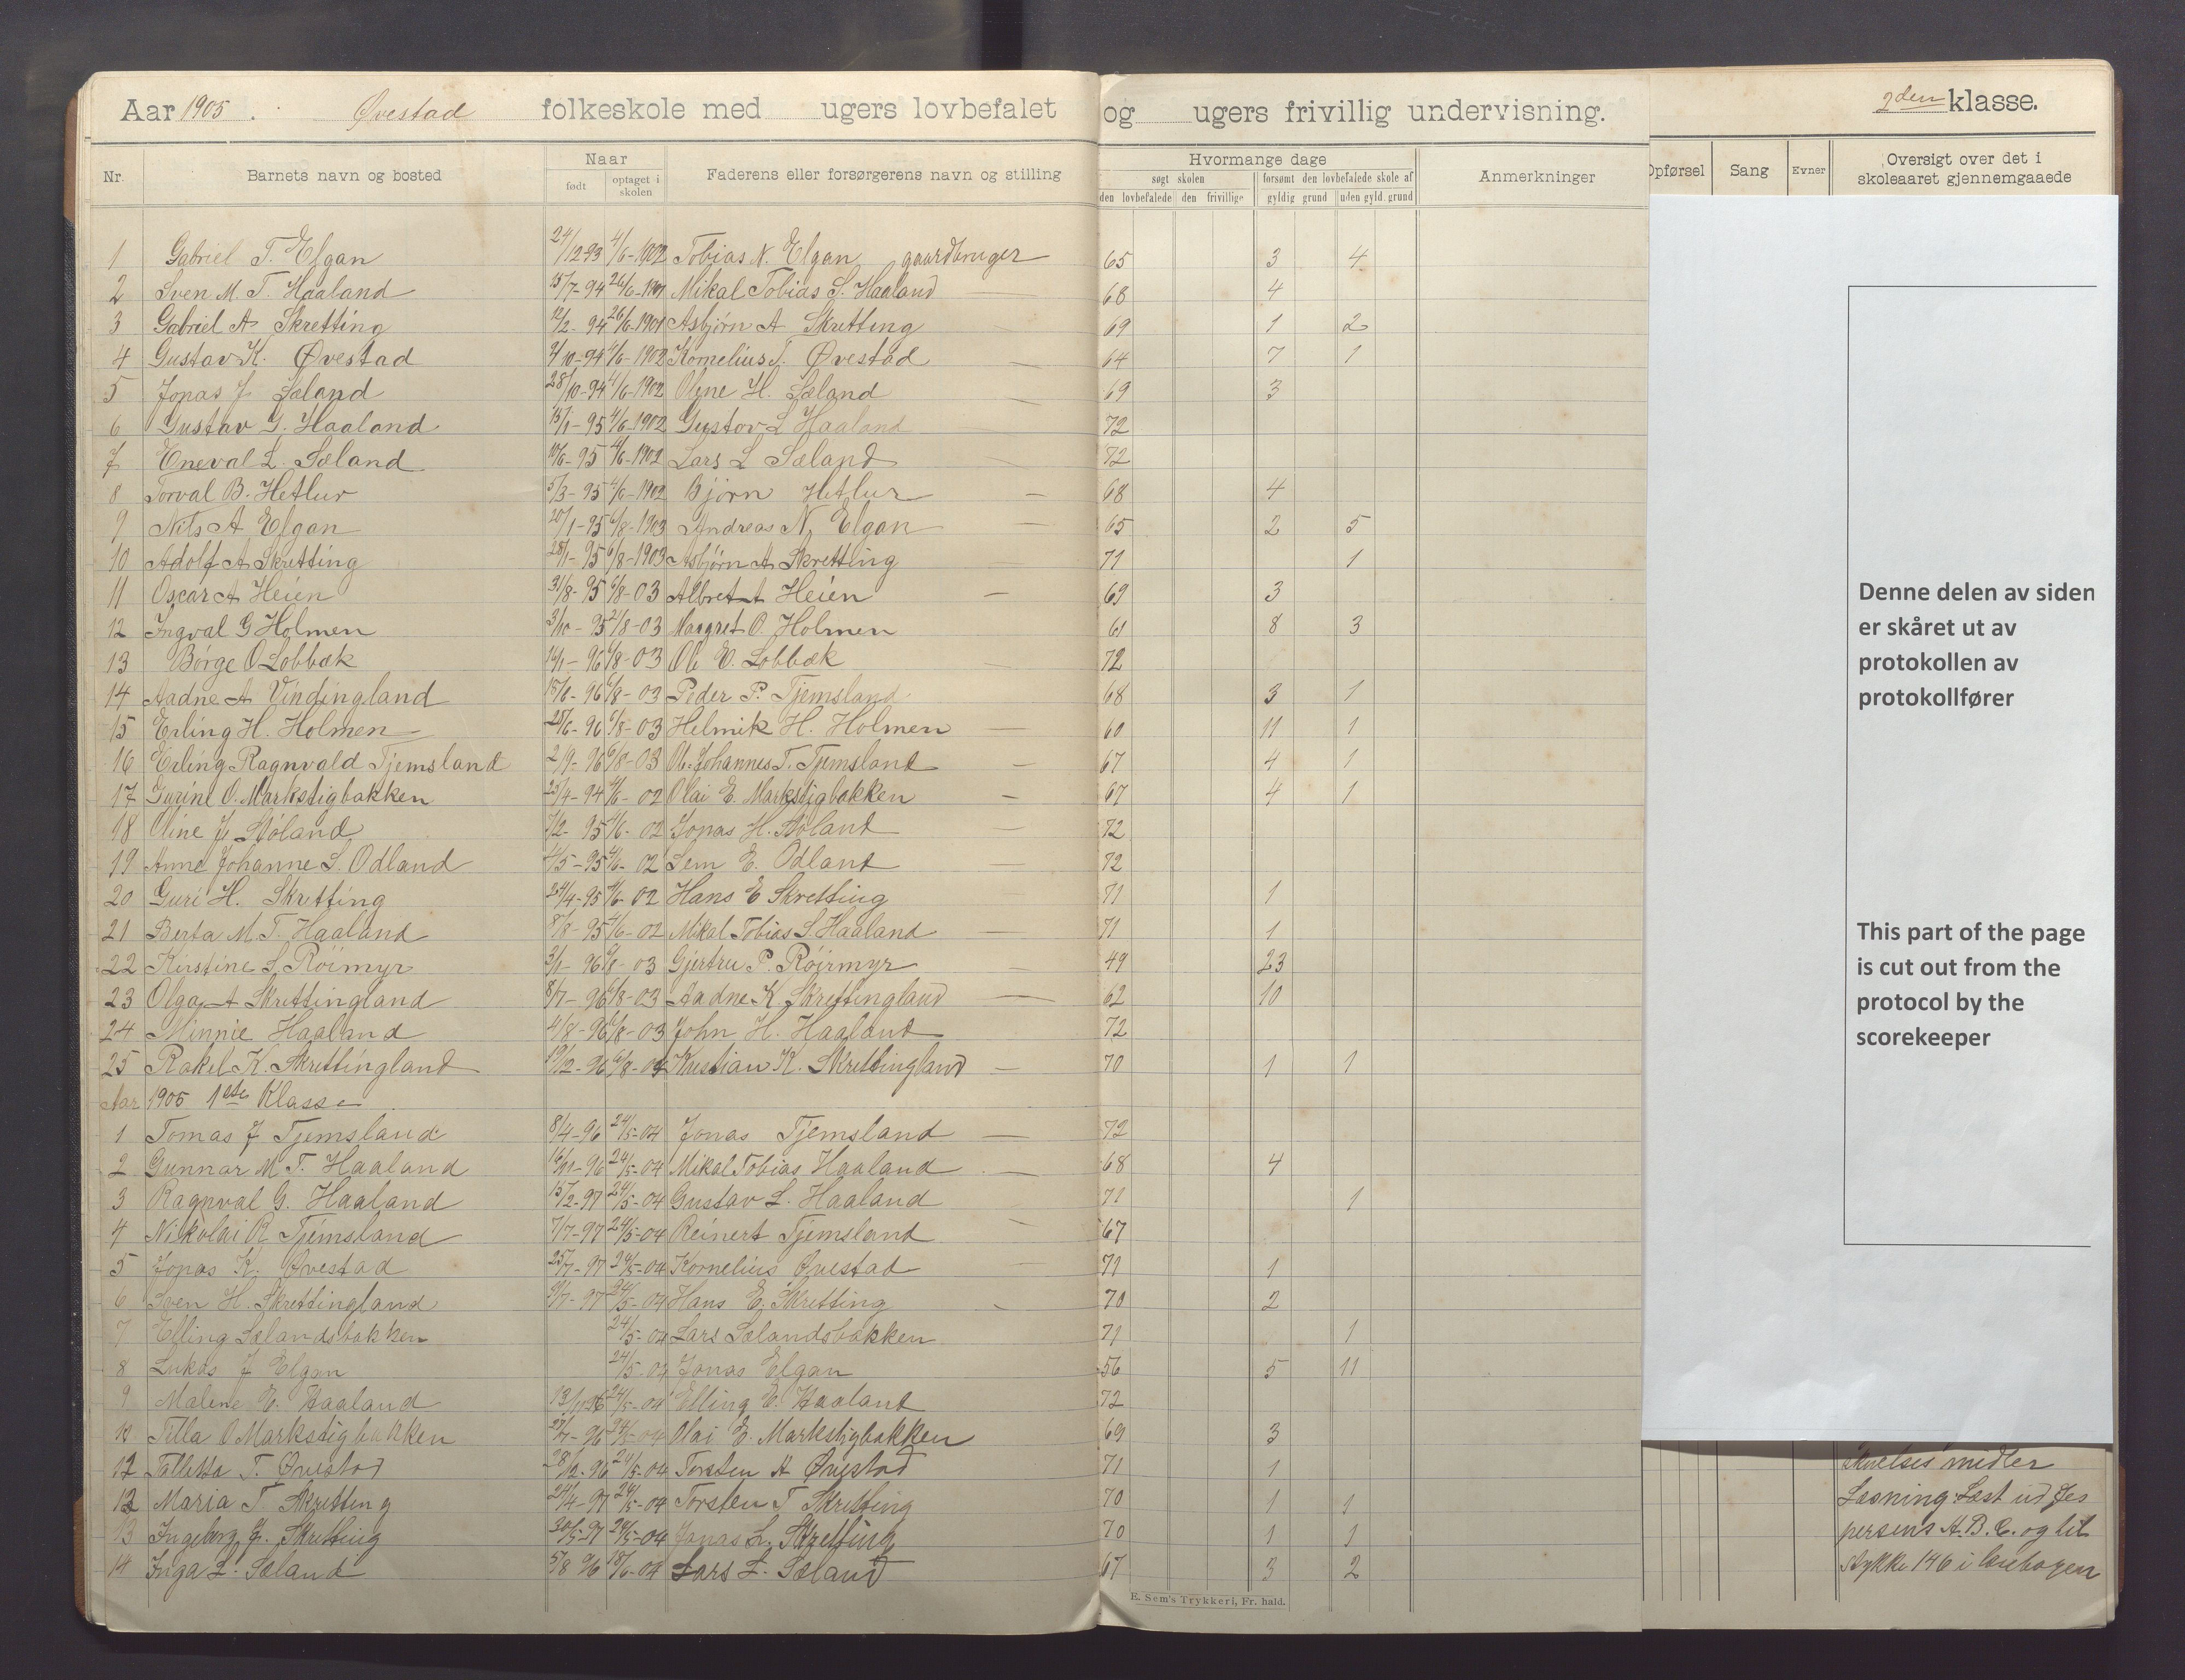 Aar 1905. Øvestad folkeskole med ugers lovbefalet og ugers frivillig undervisning. 2den klasse.
Nr. Barnets navn og bosted Naar født optaget i skolen Faderens eller forsørgerens navn og stilling Hvormange dage søgt skolen den lovbefalede den frivillige forsømt den lovbefalede skole af gyldig grund uden gyld. grund Anmerkninger Opførsel Sang Evner Oversigt over det i skoleaaret gjennemgaaede
1 Gabriel T. Elgan 24/12-93 4/6-1902 Tobias N. Elgan gaardbruger 65 3 4
2 Sven M. T. Haaland 15/7-94 26/6-1901 Mikal Tobias S. Haaland — 68 4
3 Gabriel A. Skretting 12/2-94 26/6-1901 Asbjörn A Skretting — 69 1 2
4 Gustav K. Øvestad 2/10-94 4/6-1902 Kornelius T. Øvestad — 64 7 1
5 Jonas J Sæland 28/10-94 4/6-1902 Olene H. Sæland — 69 3
6 Gustav G. Haaland 15/1-95 4/6-1902 Gustav L Haaland — 72
7 Eneval L. Sæland 10/6-95 4/6-1902 Lars L Sæland — 72
8 Torval B. Hetlur 5/3-95 4/6-1902 Björn Hetlur — 68 4
9 Nils A Elgan 20/1-95 6/8-1903 Andreas N. Elgan — 65 2 5
10 Adolf A Skretting 28/1-95 6/8-1903 Asbjörn A Skretting 71 1
11 Oscar A Heien 31/8-95 6/8-03 Albret A Heien — 69 3
12 Ingval G Holmen 3/10-95 21/8-03 Margret O. Holmen 61 8 3
13 Börge O Lobbæk 14/1-96 6/8-03 Ole E. Lobbæk — 72
14 Aadne A Vindingland 18/6-96 6/8-03 Peder P. Tjemsland 68 3 1
15 Erling H. Holmen 28/6-96 6/8-03 Helmik H. Holmen — 60 11 1
16 Erling Ragnvald Tjemsland 2/9-96 6/8-03 Johannes T. Tjemsland — 67 4 1
17 Gurine O. Markstigbakken 25/4-94 4/6-02 Olai E. Markstigbakken — 67 4 1
18 Oline J. Støland 7/2-95 4/6-02 Jonas H. Støland — 72
19 Anne Johanne S. Odland 4/5-95 4/6-02 Sem E. Odland — 72
20 Guri H. Skretting 24/4-95 4/6-02 Hans E Skretting 71 1
21 Berta M. T. Haaland 8/8-95 4/6-02 Mikal Tobias S. Haaland — 71 1
22 Kirstine S. Röimyr 3/1-96 6/8-03 Gjertru P. Röirmyr — 49 23
23 Olga A Skrettingland 8/7-96 6/8-03 Aadne K. Skrettingland — 62 10
24 Minnie Haaland 4/8-96 6/8-03 John H. Haaland — 72
25 Rakel K. Skrettingland 19/12-96 6/8-04 Kristian K. Skrettingland — 70 1 1
Aar 1905 1ste Klasse
1 Tomas J Tjemsland 8/4-96 24/5-04 Jonas Tjemsland — 72
2 Gunnar M. T. Haaland 16/11-96 24/5-04 Mikal Tobias Haaland — 68 4
3 Ragnval G. Haaland 15/2-97 24/5-04 Gustav L. Haaland 71 1
4 Nikolai R Tjemsland 7/7-97 24/5-04 Reinert Tjemsland — 67
5 Jonas K. Øvestad 25/7-97 24/5-04 Kornelius Øvestad — 71 1
6 Sven H. Skrettingland 9/7-97 24/5-04 Hans E. Skretting 70 2
7 Elling Sælandsbakken 24/5-04 Lars Sælandsbakken 71 1
8 Lukas J Elgan 24/5-04 Jonas Elgan 56 5 11
9 Malene E. Haaland 13/11-96 24/5-04 Elling E. Haaland 72
Tilla O Markstigbakken 24/5-04 Olai E. Markstigbakken 69 3
T. Øvestad 28/12-96 24/5-04 Torsten A Øvestad 71 1
12 Maria T Skretting 24/4-97 24/5-04 Torsten T Skretting 70 1 1
13 Ingeborg J. Skretting 30/5-97 24/5-04 Jonas L. Skretting 70 1 1
14 Inga L. Sæland 5/8 96 18/6-04 Lars L. Sæland 67 3 2
Denne delen av siden
er skåret ut av
protokollen av
protokollfører
This part of the page
is cut out from the
protocol by the
scorekeeper
midler
Læsning: Læst ud Jes
persens A. B. C. og til
stykke 146 i læsebogen
E. Sem's Trykkeri, Fr. hald.